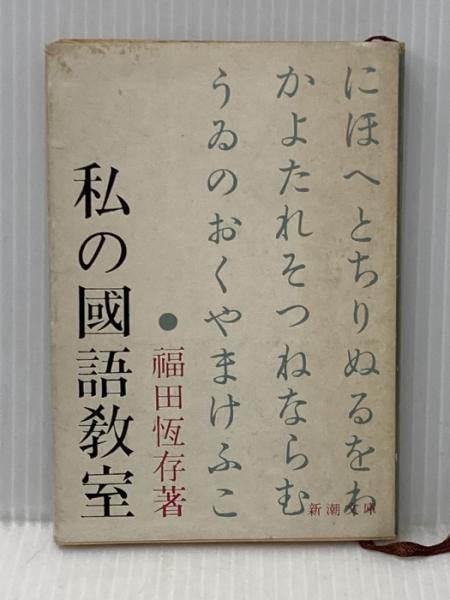 にほへとちりぬるをわ
かよたれそつねならむ
うゐのおくやまけふこ
福田恆存著
私の國語敎室
新潮文庫